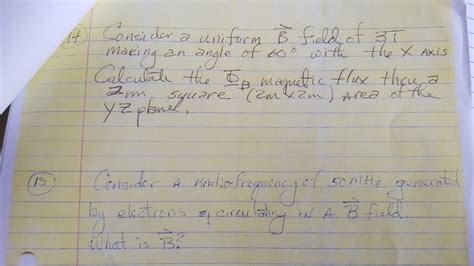 14 Consider a uniform B field of 3T
making an angle of 60° with the X Axis
Calculate the Φ_B magnetic flux thru a
square (2m x 2m) Area of the
yz plane.
15 Consider A Radio frequency of 50 MHz generated
by electrons circulating in A B field.
What is B?